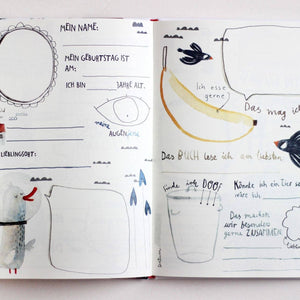 MEIN NAME:
MEIN GEBURTSTAG IST
AM:
ICH BIN JAHRE ALT.
meine
AUGENFARBE
LIEBLINGSORT:
Ich esse
gerne
Das mag ich
Das BUCH lese ich am liebsten
finde ich DOOF
Könnte ich ein Tier s
wäre ich
Das machen
wir besonders
gerne ZUSAMMEN